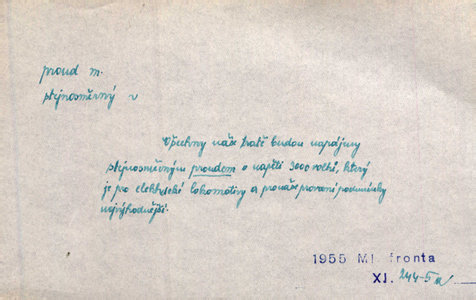 proud m.
stejnosměrný v
Všechny naše tratě budou napájeny
stejnosměrným proudem o napětí 3000 voltů, který
je pro elektrické lokomotivy a pro naše provozní podmínky
nejvýhodnější.
1955 Ml. fronta
XI. 244-5